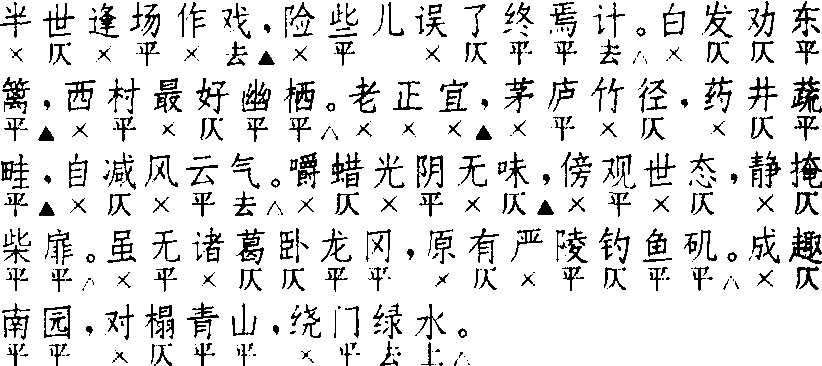 半世逢场作戏，险些儿误了终焉计。白发劝东
× 仄 × 平 × 去 ▲ × 平 × 仄 平 平 去 △ × 仄 仄 平
篱，西村最好幽栖。老正宜，茅庐竹径，药井蔬
平 ▲ × 平 × 仄 平 平 △ × × × ▲ × 平 × 仄 × 仄 平
畦，自减风云气。嚼蜡光阴无味，傍观世态，静掩
平 ▲ × 仄 × 平 去 △ × 仄 × 平 × 仄 ▲ × 平 × 仄 × 仄
柴扉。虽无诸葛卧龙冈，原有严陵钓鱼矶。成趣
平 平 △ × 平 × 仄 仄 平 平 × 仄 × 平 仄 平 平 △ × 仄
南园，对榻青山，绕门绿水。
平 平 × 仄 平 平 × 平 去 上 △